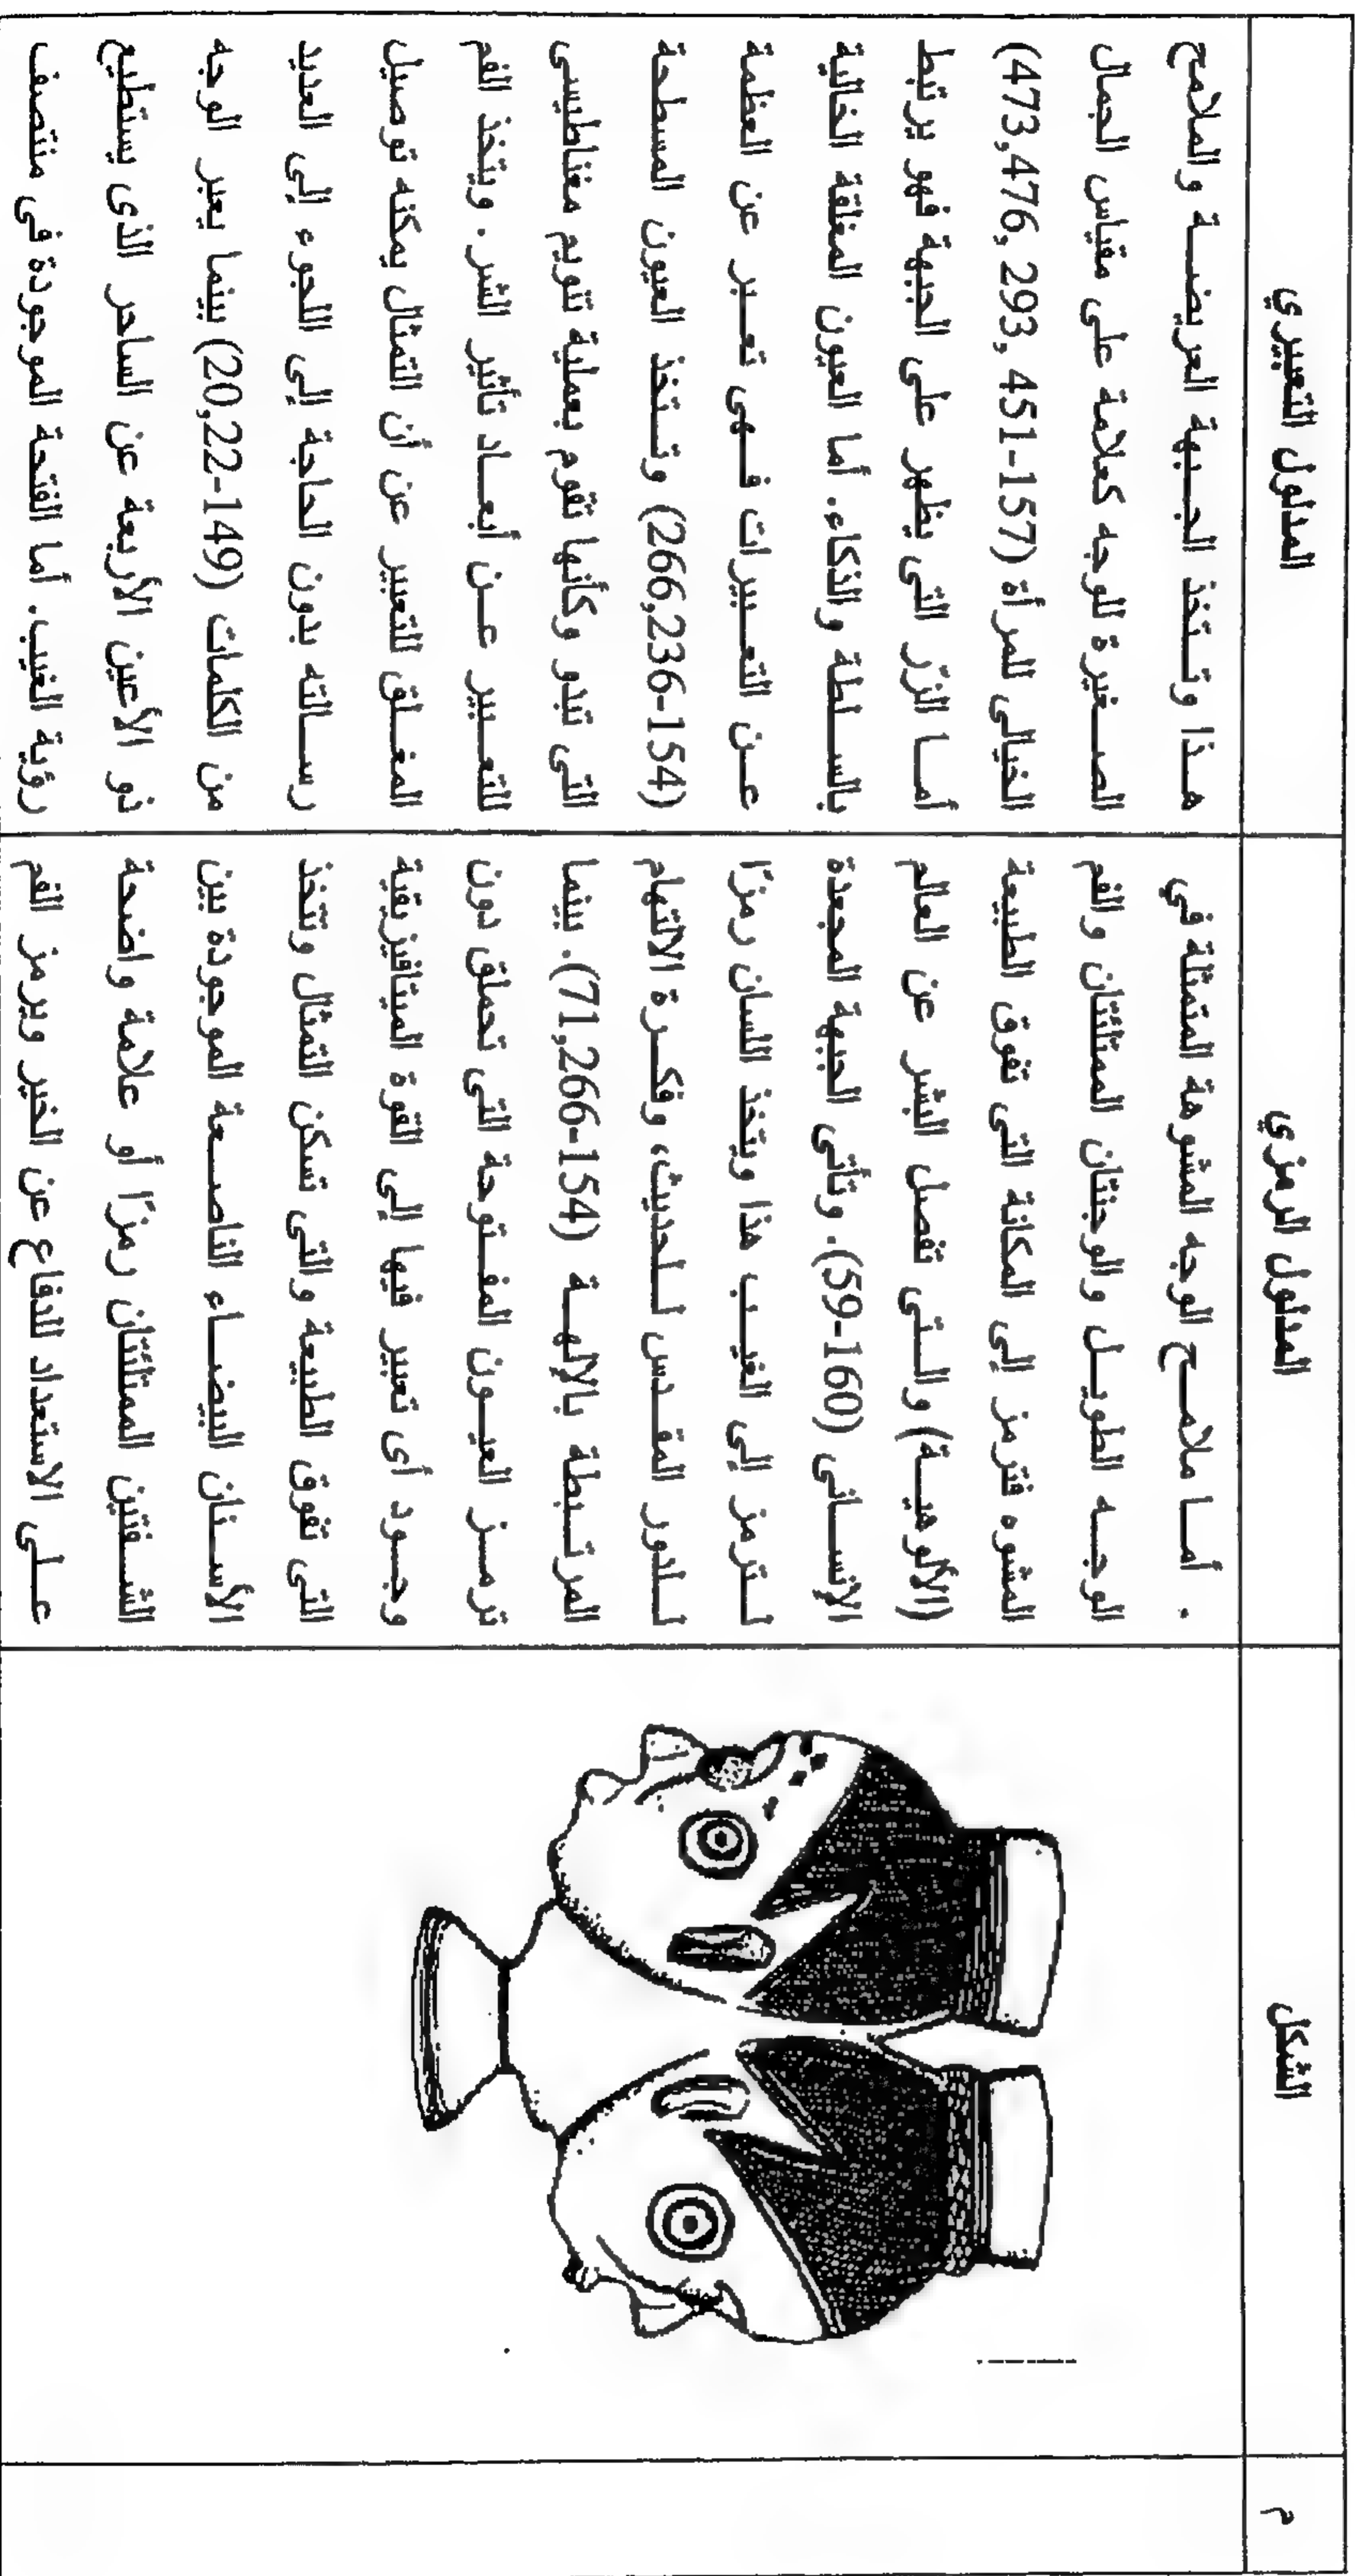 م
الشكل
المدلول الرمزي
المدلول التعبيري
. أما ملامح الوجه المشوهة المتمثلة في
الوجه الطويل والوجنتان الممتلئتان والفم
المشوه فترمز إلى المكانة التى تفوق الطبيعة
(الألوهية) والتى تفصل البشر عن العالم
الإنسانى (160-59). وتأتى الجبهة المجعدة
لترمز إلى الغيب هذا ويتخذ اللسان رمزًا
للدور المقدس للحديث، وفكرة الالتهام
المرتبطة بالإلهة (154-71,266). بينما
ترمز العيون المفتوحة التى تحملق دون
وجود أى تعبير فيها إلى القوة الميتافيزيقية
التى تفوق الطبيعة والتى تسكن التمثال وتتخذ
الأسنان البيضاء الناصعة الموجودة بين
الشفتين الممتلئتان رمزًا أو علامة واضحة
على الاستعداد للدفاع عن الخير ويرمز الفم
هذا وتتخذ الجبهة العريضة والملامح
الصغيرة للوجه كعلامة على مقياس الجمال
الخيالى للمرأة (157-451 ,293 ,473,476)
أما الزر التى يظهر على الجبهة فهو يرتبط
بالسلطة والذكاء. أما العيون المغلقة الخالية
عن التعبيرات فهى تعبر عن العظمة
(154-266,236) وتتخذ العيون المسطحة
التى تبدو وكأنها تقوم بعملية تنويم مغناطيسى
للتعبير عن أبعاد تأثير الشر. ويتخذ الفم
المغلق للتعبير عن أن التمثال يمكنه توصيل
رسالته بدون الحاجة إلى اللجوء إلى العديد
من الكلمات (149-20,22) بينما يعبر الوجه
ذو الأعين الأربعة عن الساحر الذى يستطيع
رؤية الغيب. أما الفتحة الموجودة فى منتصف